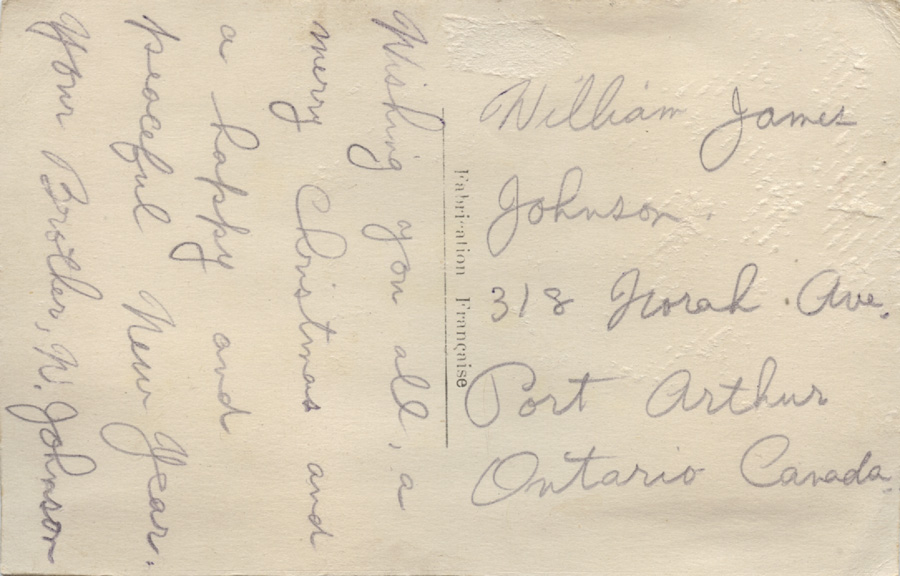 Wishing you all, a
merry Christmas and
a happy and
peaceful New Year.
Your Brother, N. Johnson
Fabrication Française
William James
Johnson.
318 Norah Ave.
Port Arthur
Ontario Canada.